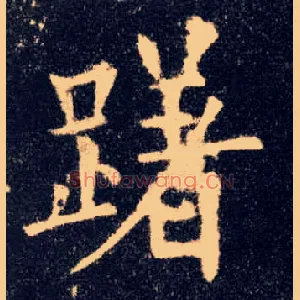 躇
Shufawang.CN